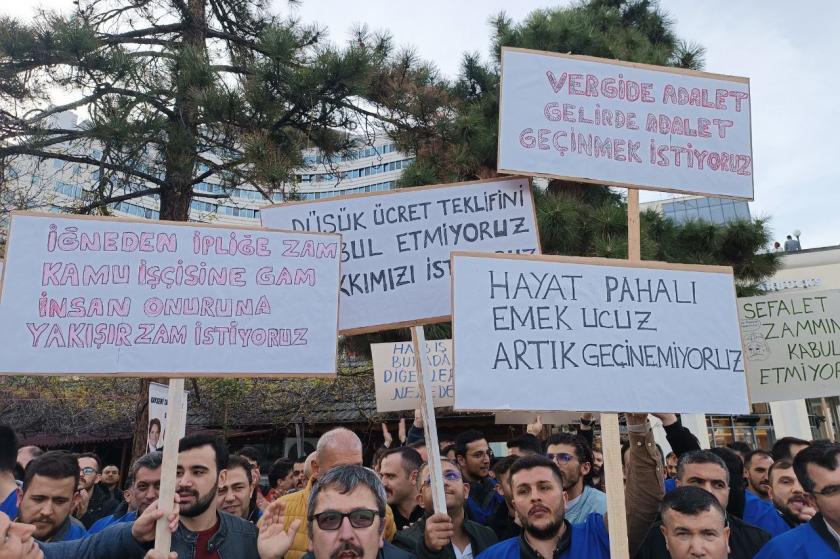 VERGİDE ADALET
GELİRDE ADALET
GEÇİNMEK İSTİYORUZ
DÜŞÜK ÜCRET TEKLİFİNİ
KABUL ETMİYORUZ
İĞNEDEN İPLİĞE ZAM
KAMU İŞÇİSİNE GAM
İNSAN ONURUNA
YAKIŞIR ZAM İSTİYORUZ
HAYAT PAHALI
EMEK UCUZ
ARTIK GEÇİNEMİYORUZ
SEFALET
ZAMMIN
KABUL
ETMİYOR
BURADA